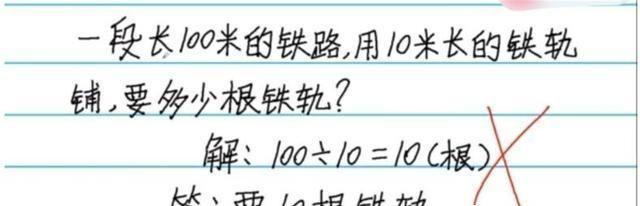 一段长100米的铁路,用10米长的铁轨
铺,要多少根铁轨?
解: 100÷10=10(根)
答:要10根铁轨